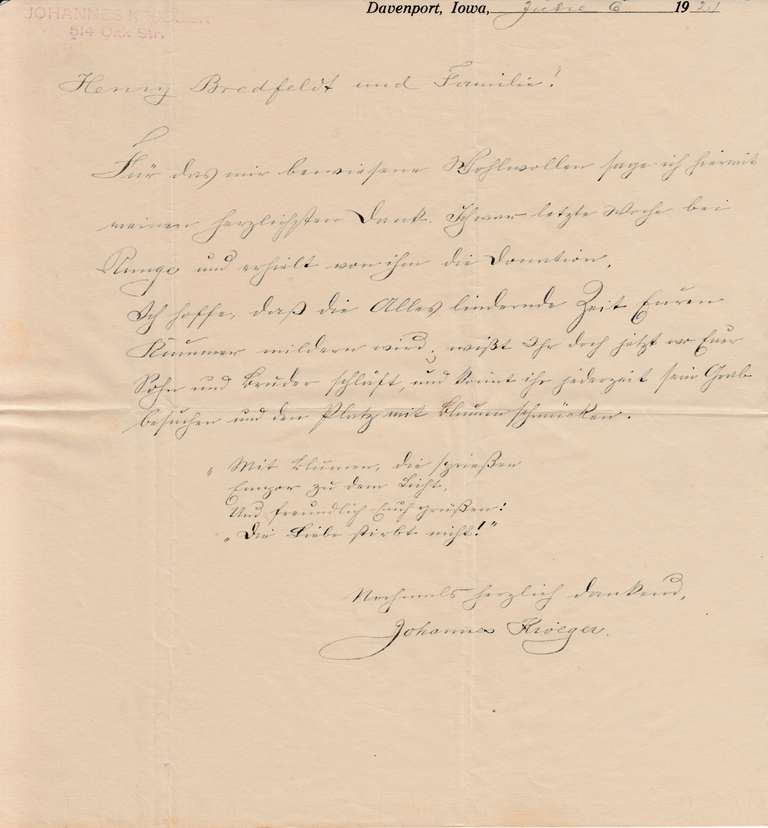 JOHANNES KROEGER
514 Oak Str.
Davenport, Iowa, 6 1921
Henry Bredfeldt und Familie!
Für das mir bewiesene Wohlwollen sage ich hiermit
meinen herzlichsten Dank. Ich war letzte Woche bei
Runge und erhielt von ihm die Donation.
Ich hoffe, daß die Alles lindernde Zeit Euren
Kummer mildern wird; wißt Ihr doch jetzt wo Euer
Sohn und Bruder schläft, und könnt ihr jederzeit sein Grab
besuchen und den Platz mit Blumen schmücken.
„Mit Blumen, die sprießen
Empor zu dem Licht,
Und freundlich Euch grüßen:
„Die Liebe stirbt nicht!"
Nochmals herzlich dankend,
Johannes Kroeger.